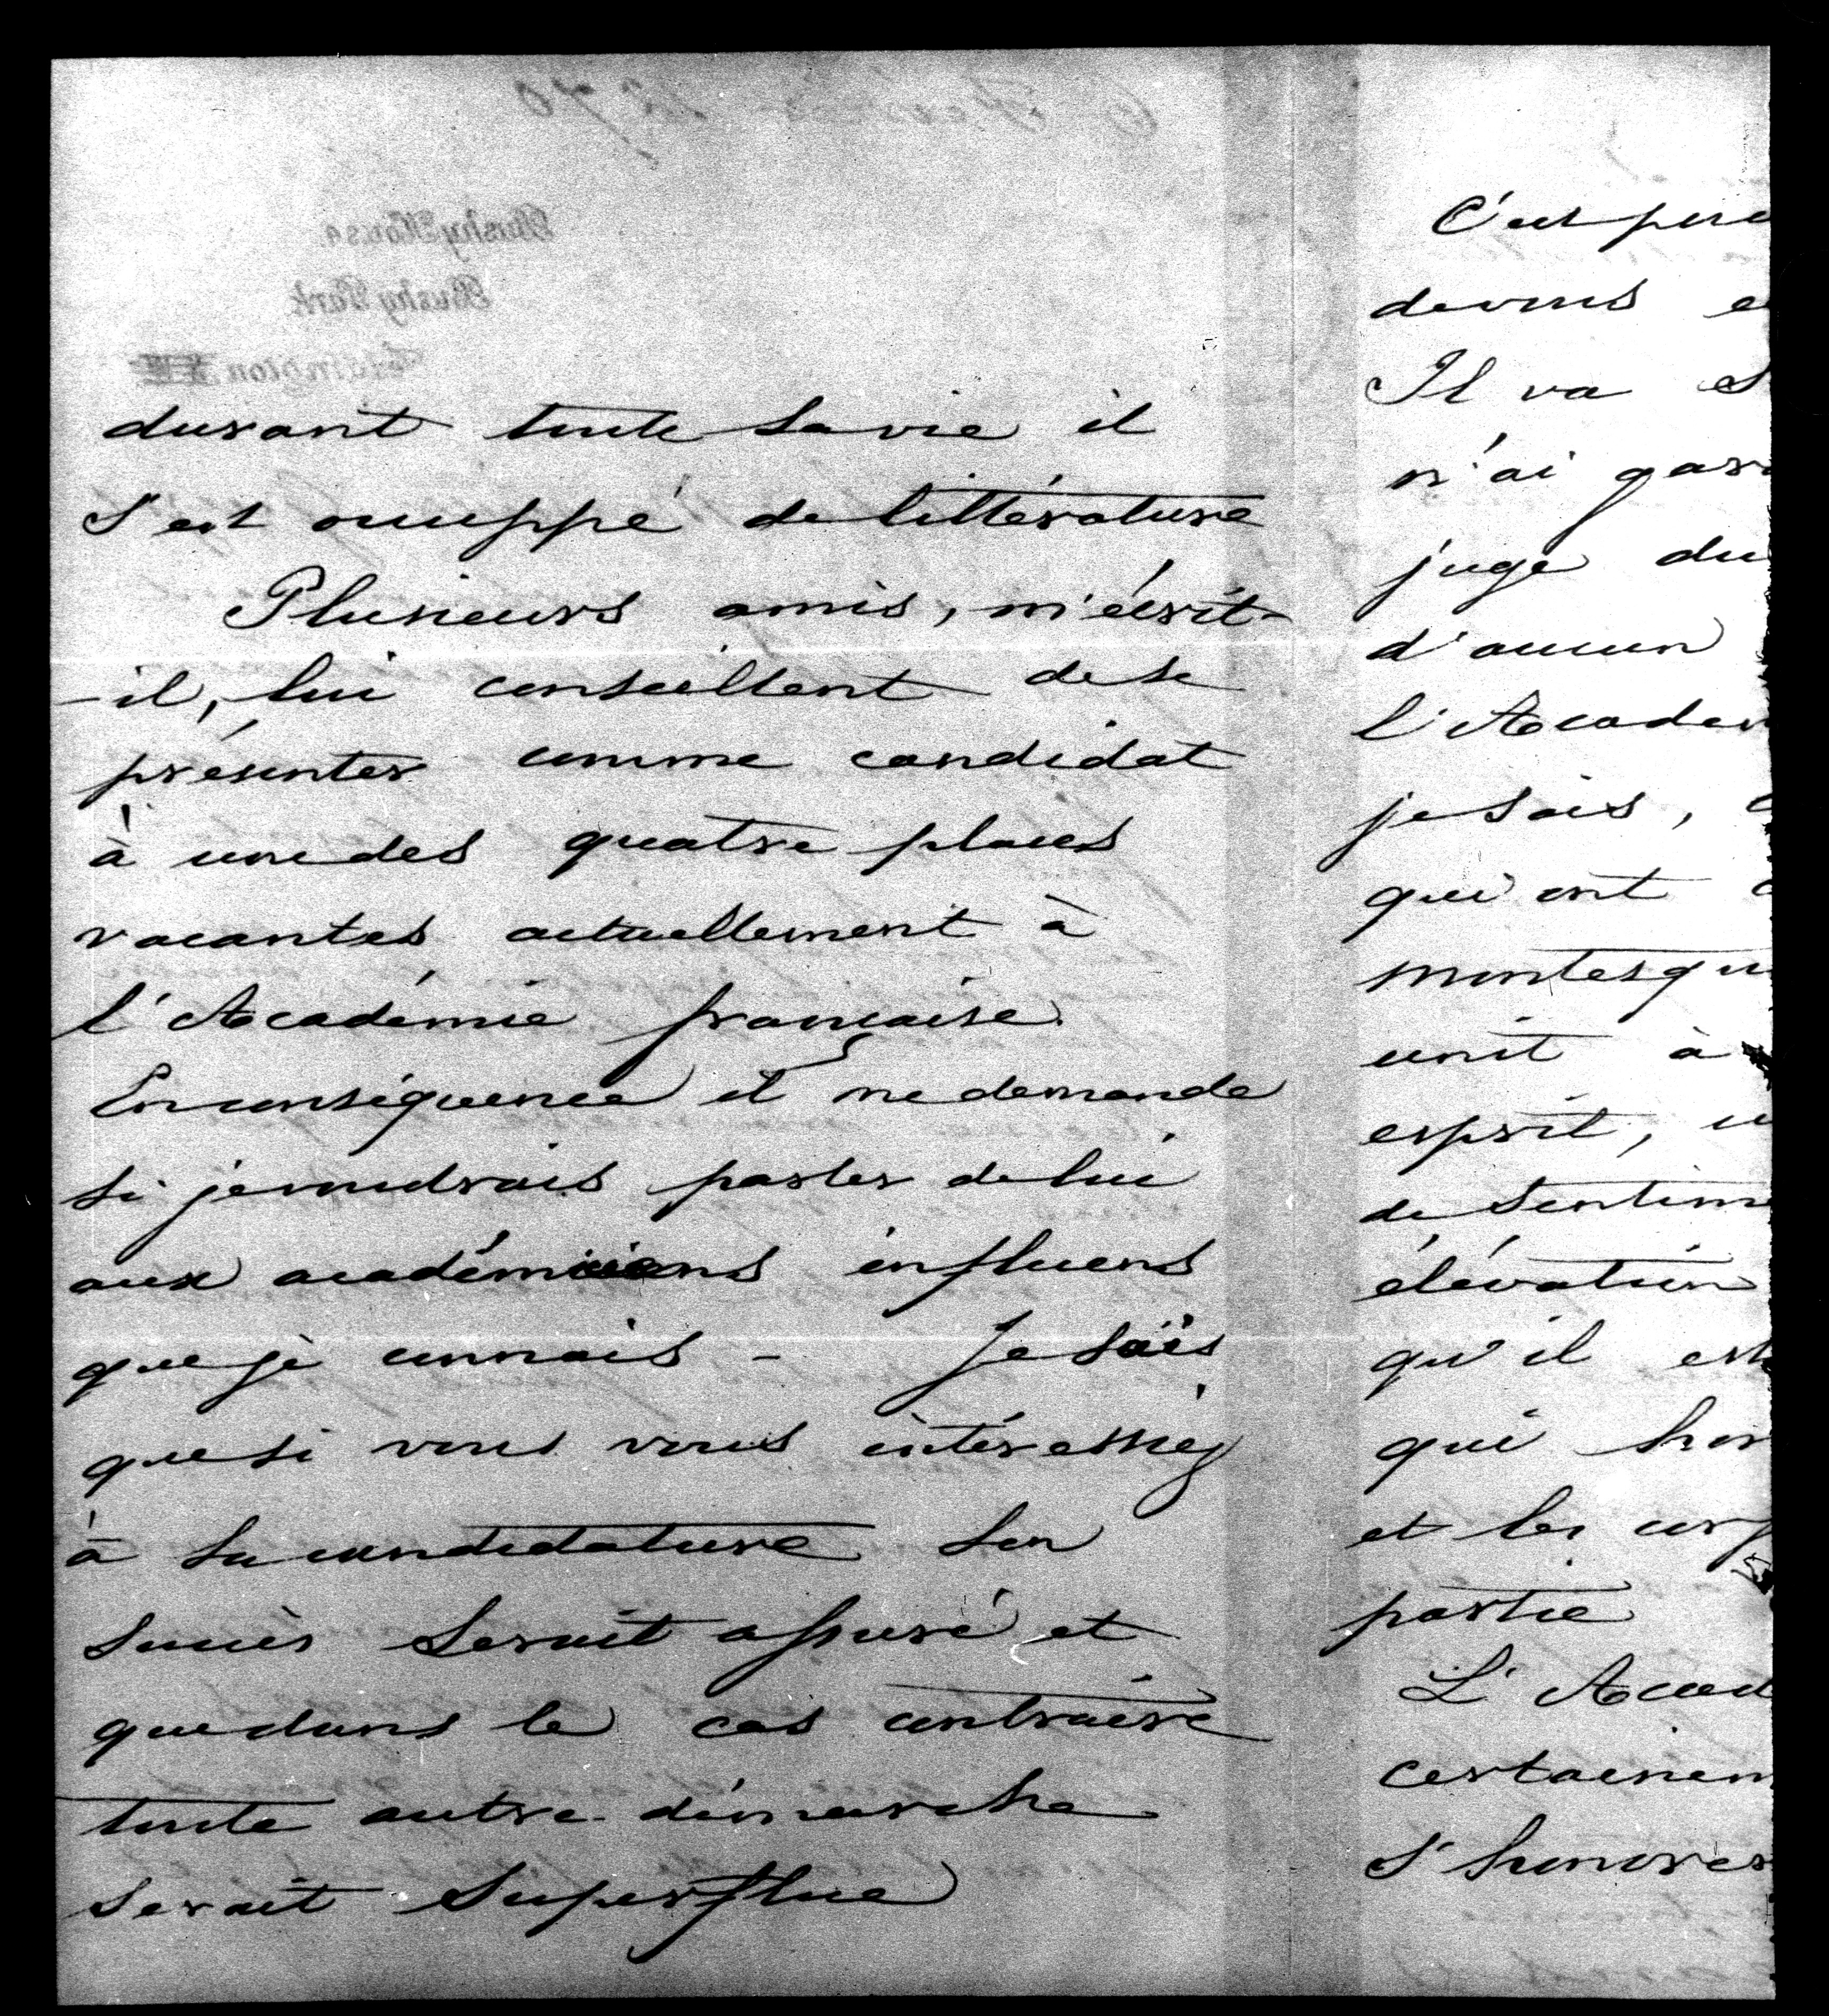 durant toute sa vie il
s'est occuppé de littérature
Plusieurs amis, m'écrit-
-il, lui conseillent de se
présenter comme candidat
à une des quatre places
vacantes actuellement à
l'Académie française.
En conséquence il me demande
si je voudrais parler de lui
aux académiciens influens
que je connais - Je sais
que si vous vous intéressiez
à sa candidature son
succès serait assuré et
que dans le cas contraire
toute autre démarche
serait superflue
C'est
devous
Il va
n'ai
juge du
d'aucun
l'Académ
je sais,
qui ont
Montesqu
unit à
esprit,
de sentim
élévation
qu'il est
qui hon
et les corp
partie
L'Acad
certainem
s'honorer